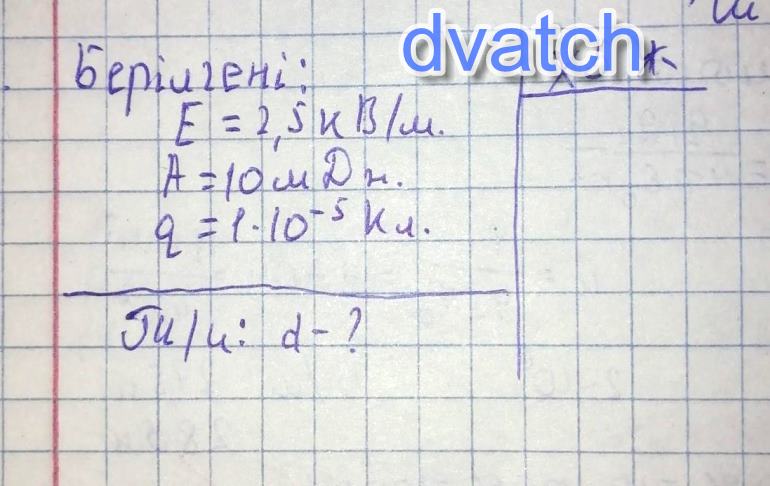 dvatch
Берілгені:
E = 2,5 кВ/м.
A = 10 мДж.
q = 1·10⁻⁵ Кл.
Т/к: d - ?